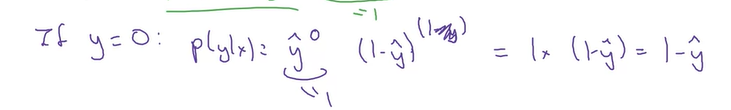 = 1
If y = 0: p(y|x) = ŷ⁰ (1-ŷ)^(1-y) = 1 × (1-ŷ) = 1-ŷ
= 1